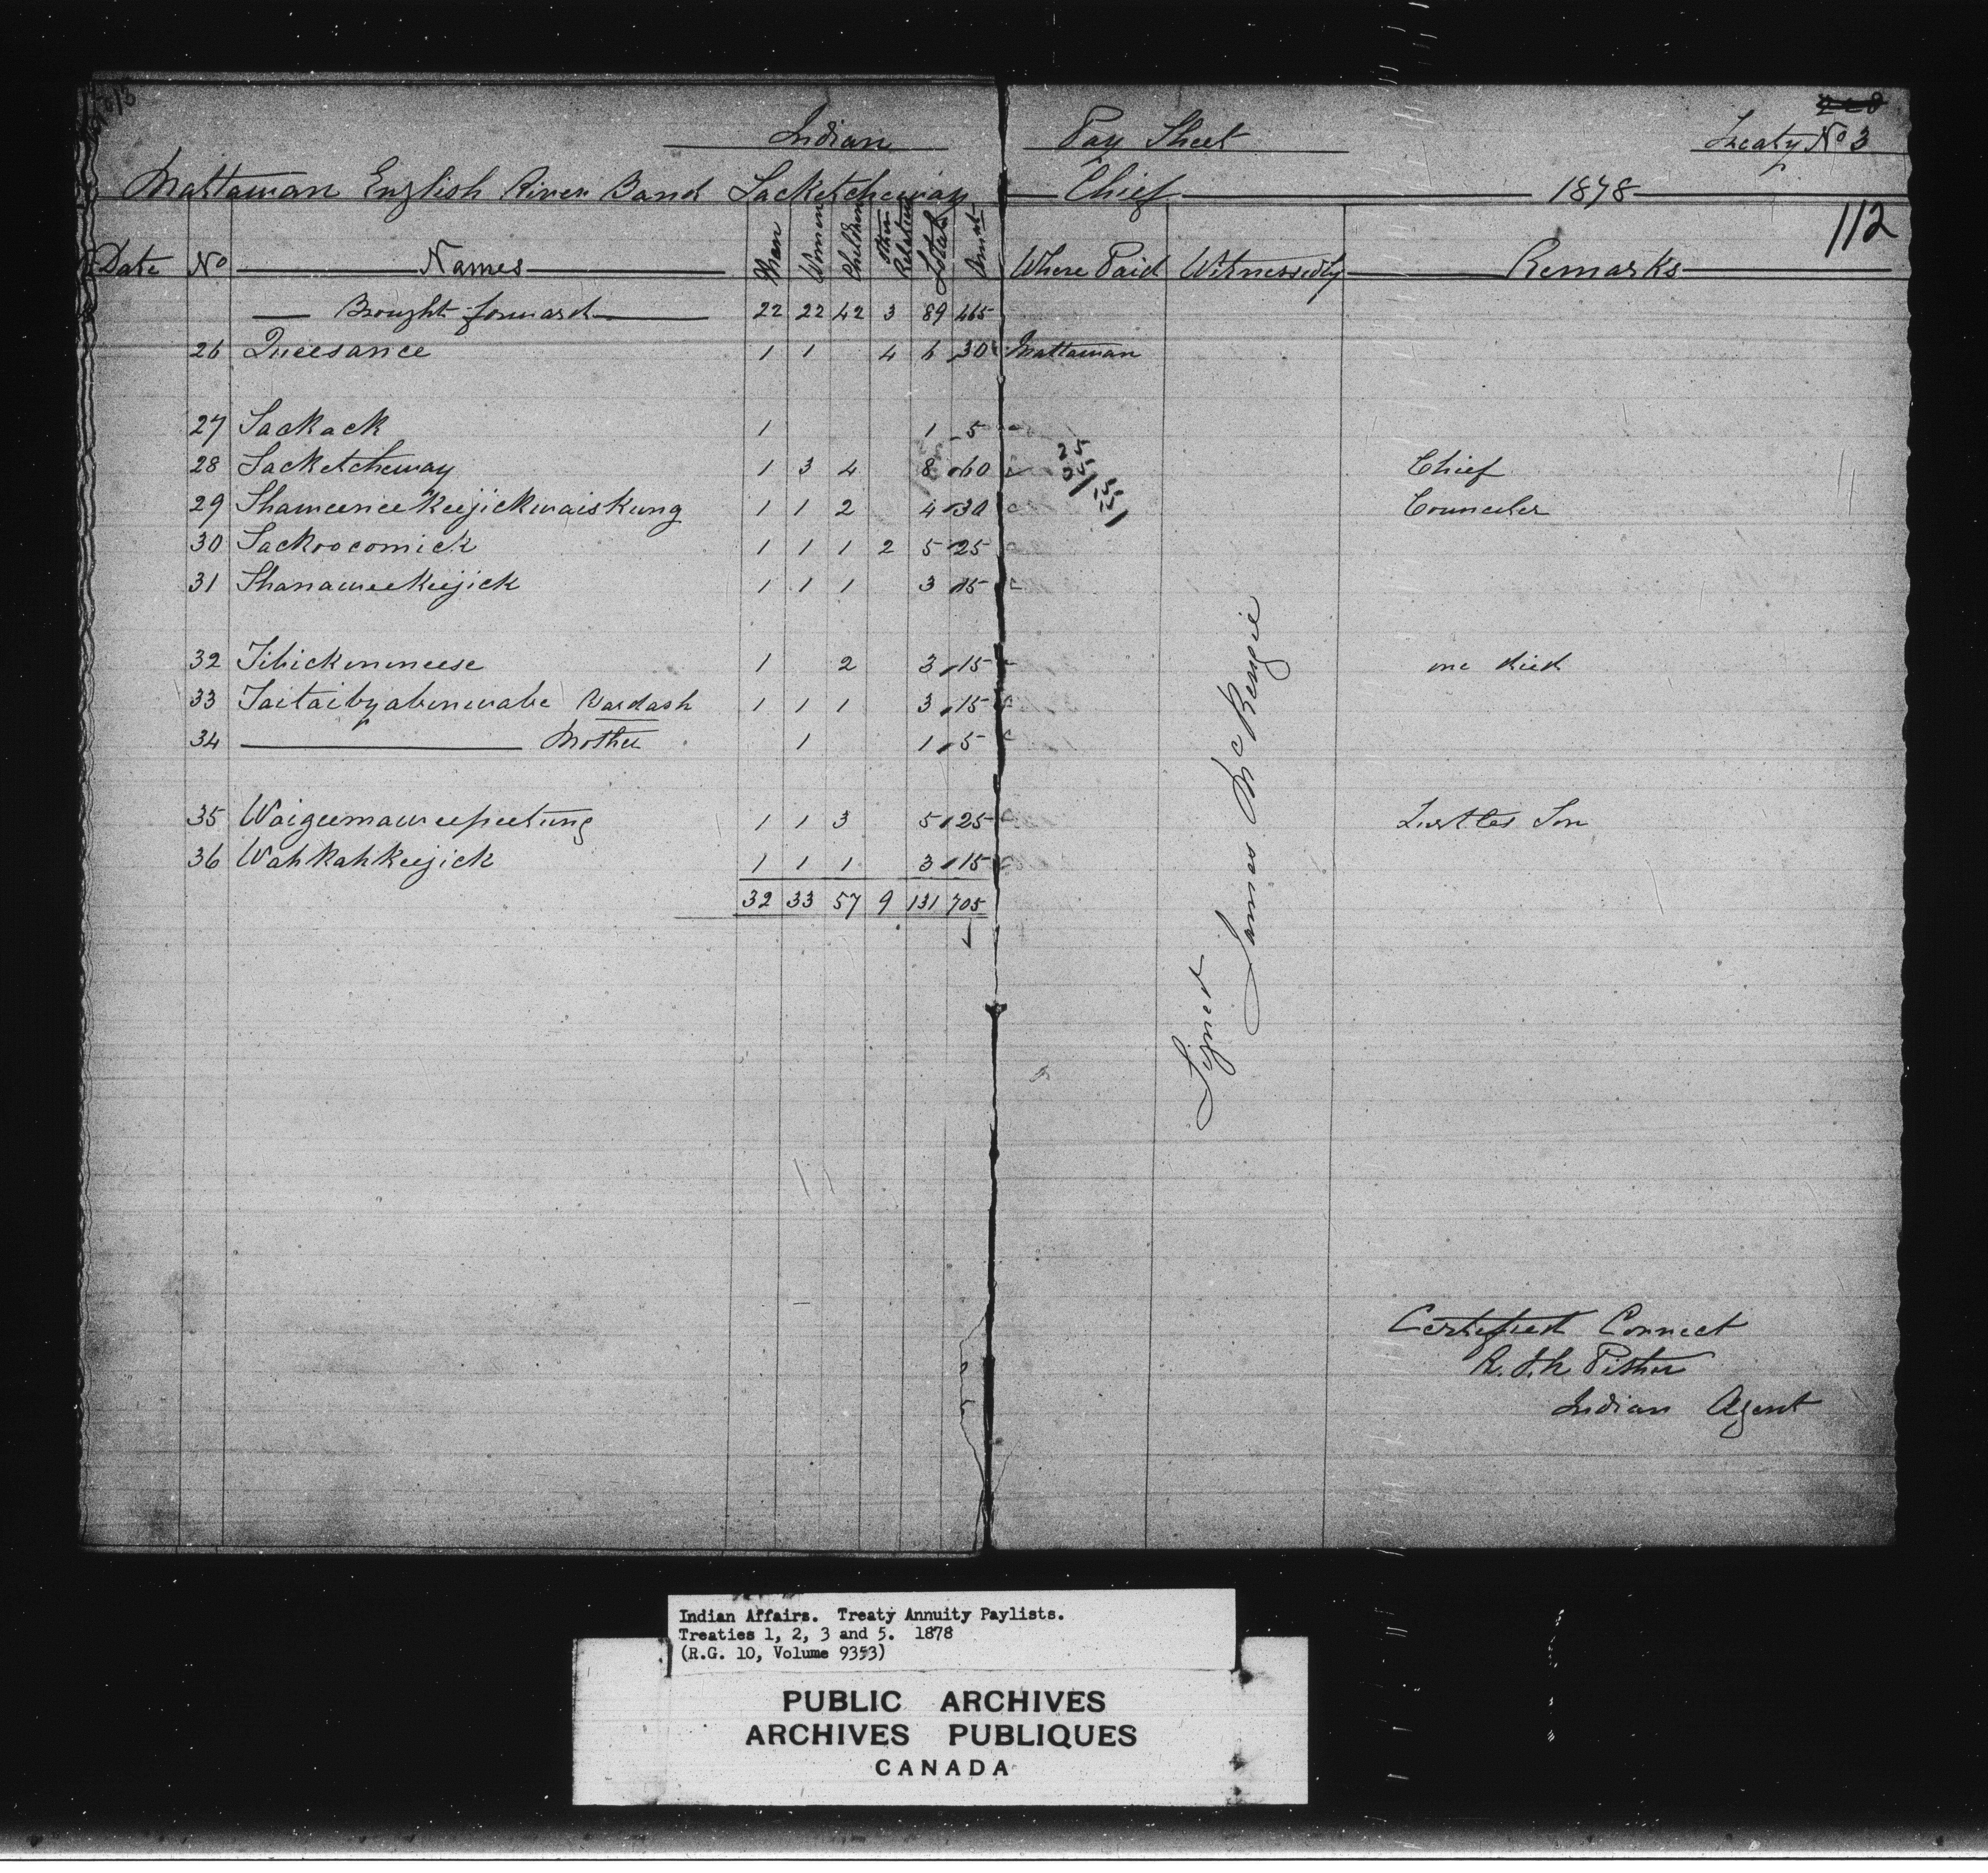 Indian Pay Sheet Treaty No 3
Mattawan English River Band Sacketcheway Chief 1878
112
Date No Names Men Women Children Other Relatives Total Amt Where Paid Witnessed by Remarks
Brought forward 22 22 42 3 89 465
26 Queesance 1 1 4 6 30 Mattawan
27 Sackack 1 1 5
28 Sacketcheway 1 3 4 8 60 Chief
29 Shaweneekeejickwaiskung 1 1 2 4 30 Counceler
30 Sackoocomick 1 1 1 2 5 25
31 Shanaweekeejick 1 1 1 3 15
32 Tibickinineese 1 2 3 15 one died
33 Taitaibyabinwabe Bardash 1 1 1 3 15
34 Mother 1 1 5
35 Waigeemaweepeetung 1 1 3 5 25 Turtles Son
36 Wahkahkeejick 1 1 1 3 15
32 33 57 9 131 705
Signed James McKenzie
Certified Correct
R. J. N. Pither
Indian Agent
Indian Affairs. Treaty Annuity Paylists.
Treaties 1, 2, 3 and 5. 1878
(R.G. 10, Volume 9353)
PUBLIC ARCHIVES
ARCHIVES PUBLIQUES
CANADA